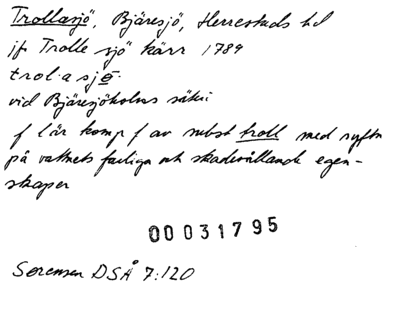 Trollasjö, Bjäresjö, Herrestads hd
jf Trolle sjö kärr 1789
trol·a sjö·
vid Bjäresjöholms säteri
f l är komp f av subst troll med syftn
på vattnets farliga och skadevållande egen-
skaper
00031795
Sørensen DSÅ 7:120